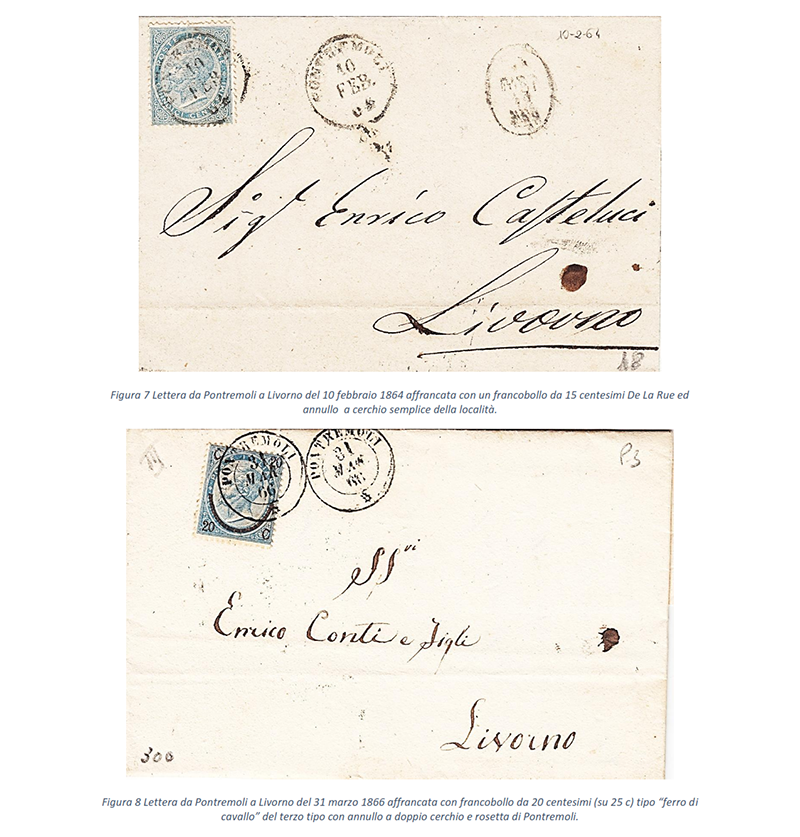 10-2-64
PONTREMOLI
10
FEB
64
Sigr Enrico Casteluci
Livorno
18
Figura 7 Lettera da Pontremoli a Livorno del 10 febbraio 1864 affrancata con un francobollo da 15 centesimi De La Rue ed
annullo a cerchio semplice della località.
PONTREMOLI
31
MAR
66
PONTREMOLI
31
MAR
66
20 C
P3
SSvi
Enrico Conti e Figli
Livorno
300
Figura 8 Lettera da Pontremoli a Livorno del 31 marzo 1866 affrancata con francobollo da 20 centesimi (su 25 c) tipo “ferro di
cavallo” del terzo tipo con annullo a doppio cerchio e rosetta di Pontremoli.